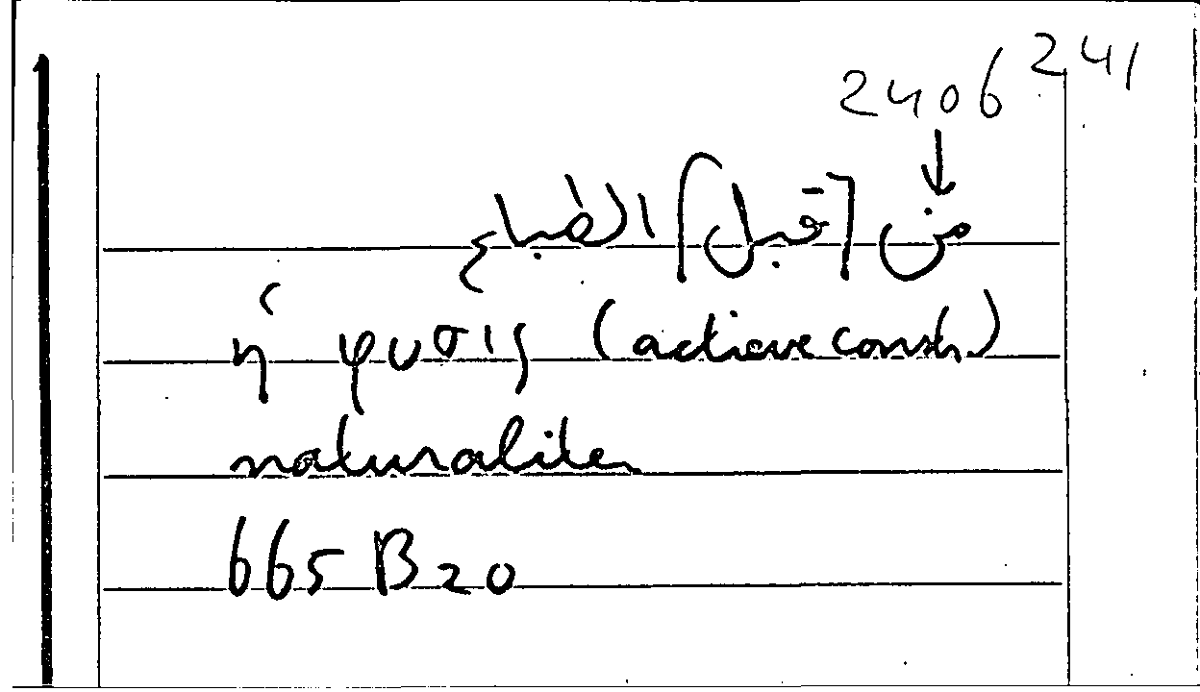 241
2406
↓
من [قبل] الطباع
ἡ φυσις (active constr.)
naturaliter
665 B 20